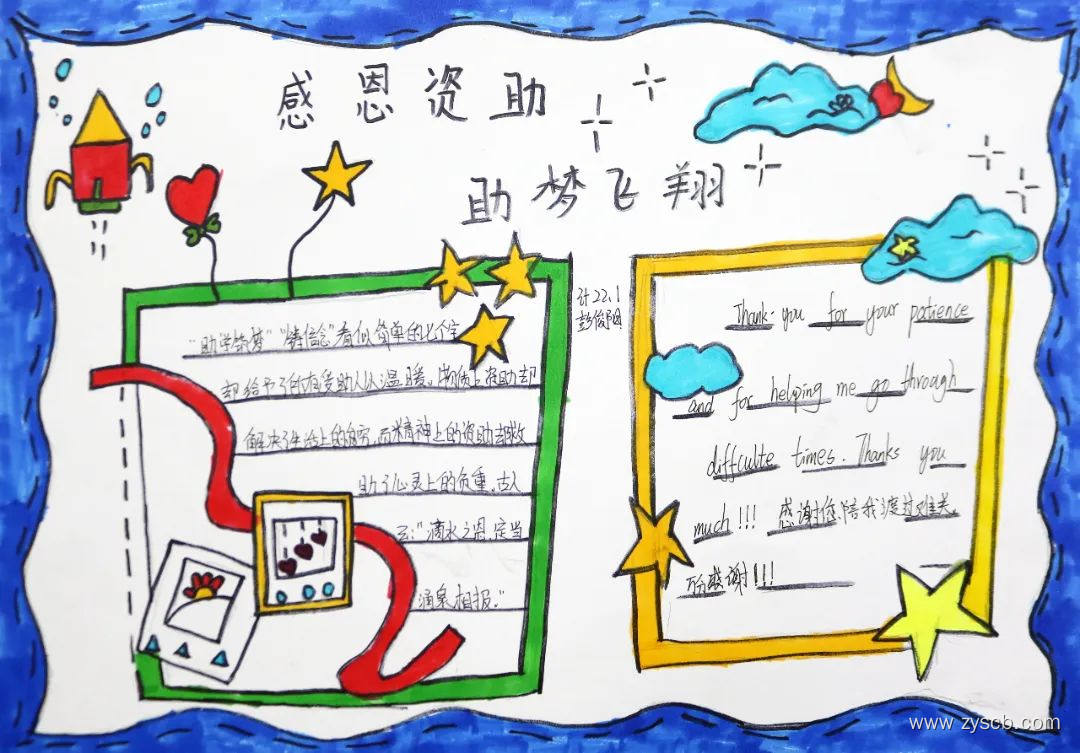 感恩资助
助梦飞翔
计22.1
"助学筑梦""铸信念"看似简单的七个字
却给予了的在受助人以温暖。物质上资助却
解决了生活上的贫穷,而精神上的资助去救
助了心灵上的负重。古人
云:"滴水之恩,定当
涌泉相报。"
Thank you for your patience
and for helping me go through
diffculte times. Thanks you
much!!! 感谢您陪我渡过难关。
万分感谢!!!
www.zyscb.com